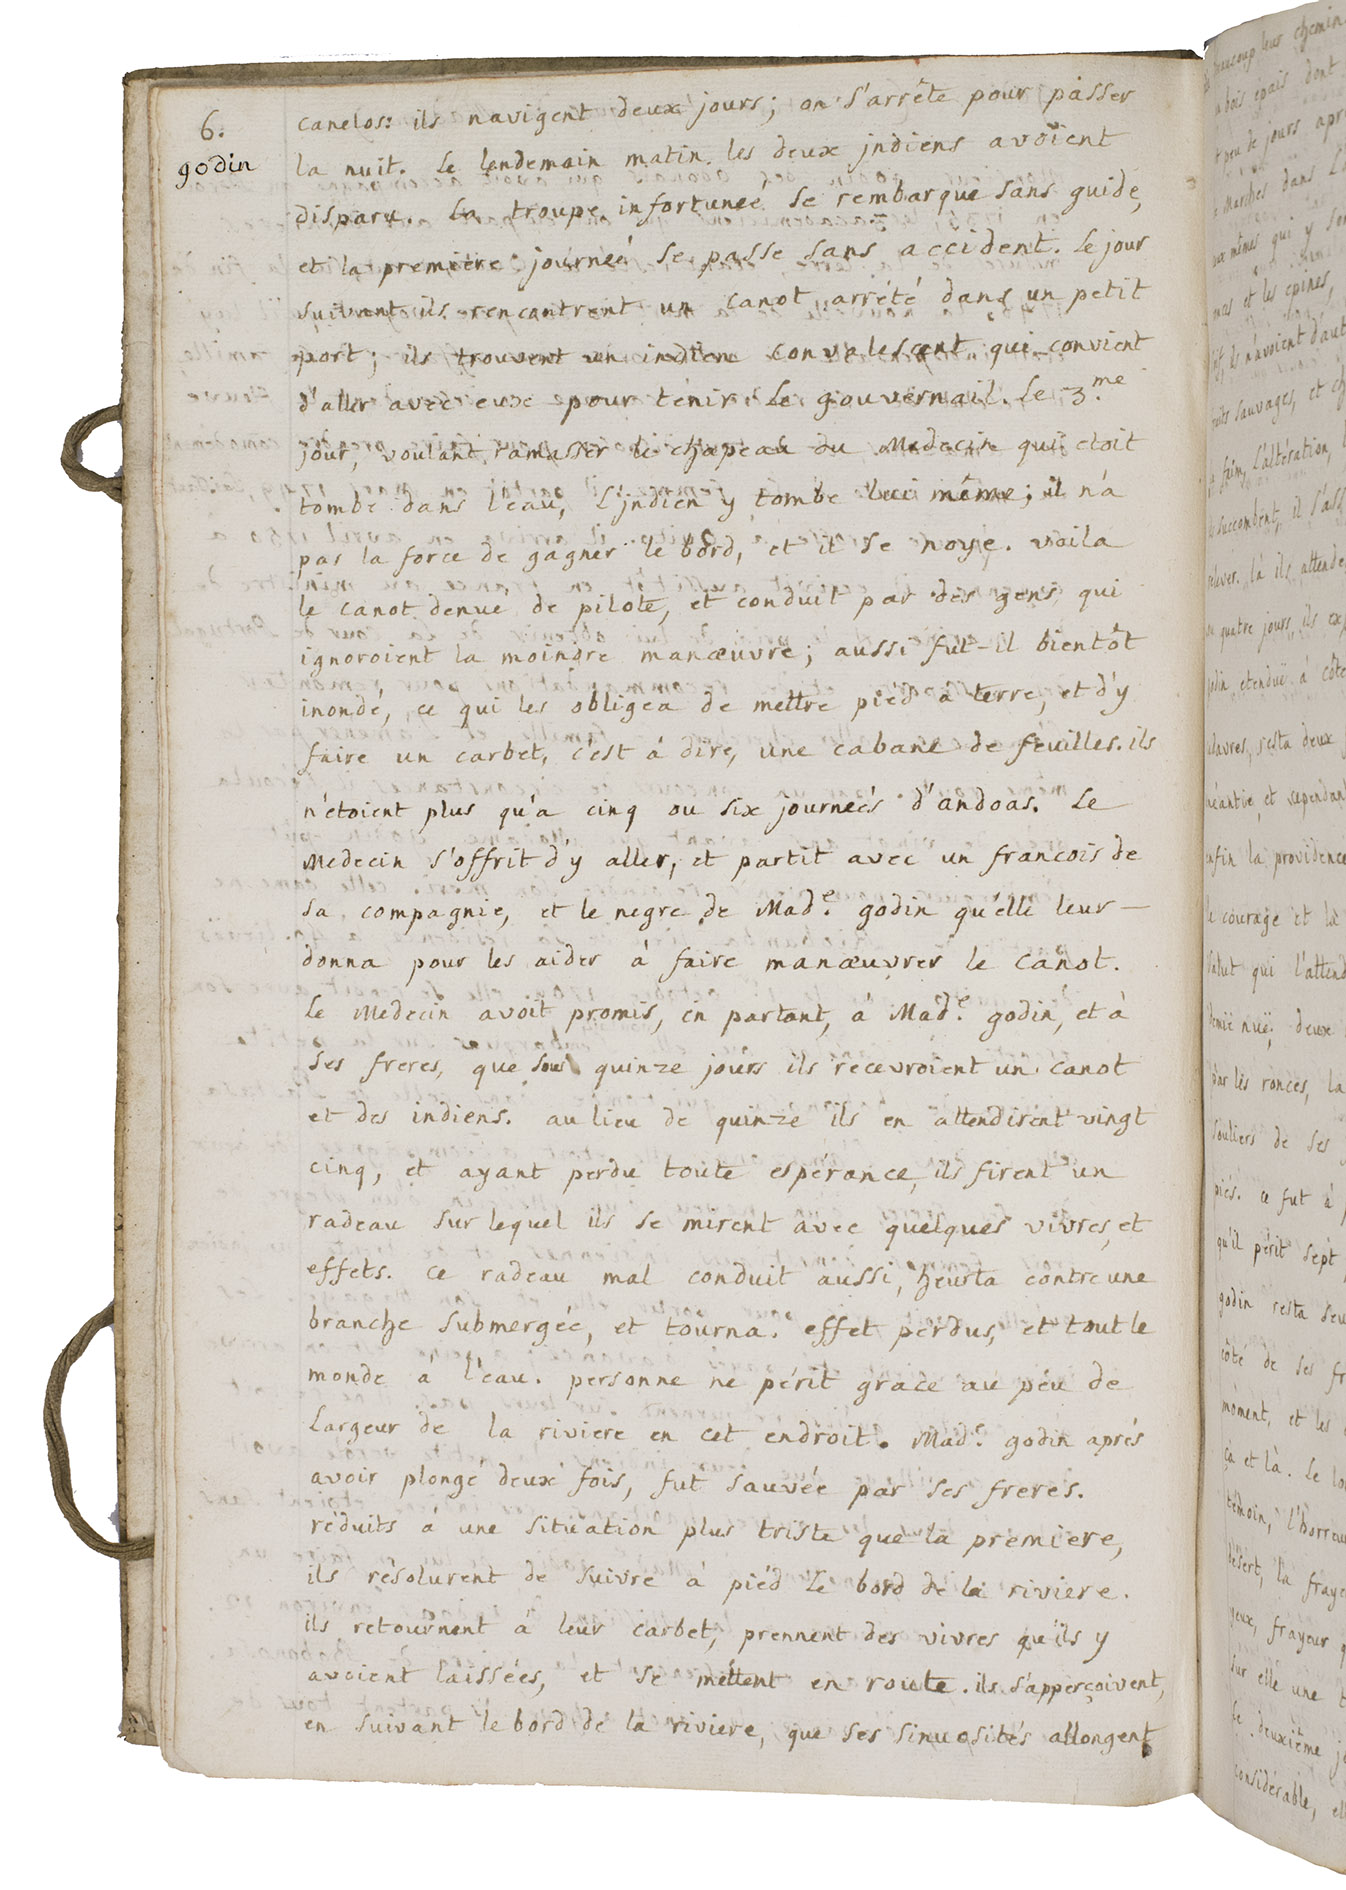 6.
godin
canelos: ils navigent deux jours; on s'arrête pour passer
la nuit. Le lendemain matin. les deux jndiens avoient
disparu. La troupe infortuneé se rembarque sans guide,
et la premiere journeé se passe sans accident. Le jour
suivant ils rencontrent un canot arrêté dans un petit
port; ils trouvent un indien convalescent qui convient
d'aller avec eux pour tenir le gouvernail. Le 3.me
jour, voulant ramasser le chapeau du Medecin qui etoit
tombe dans l'eau, L'jndien y tombe lui même; il n'a
pas la force de gagner le bord, et il se noye. voila
le canot denué de pilote, et conduit par des gens qui
ignoroient la moindre manœuvre; aussi fut-il bientôt
inondé, ce qui les obligea de mettre pied à terre, et d'y
faire un carbet, c'est á dire, une cabane de feuilles. ils
n'étoient plus qu'a cinq ou six journeés d'andoas. Le
Medecin s'offrit d'y aller, et partit avec un francois de
sa compagnie, et le negre de Mad.e godin qu'elle leur—
donna pour les aider á faire manœuvrer le canot.
Le Medecin avoit promis, en partant, á Mad.e godin, et à
ses freres, que sous quinze jours ils recevroient un canot
et des indiens. au lieu de quinze ils en attendirent vingt
cinq, et ayant perdu toute espérance, ils firent un
radeau sur lequel ils se mirent avec quelques vivres, et
effets. ce radeau mal conduit aussi, heurta contre une
branche submergée, et tourna. effet perdus, et tout le
monde á l'eau. personne ne périt grace au peu de
Largeur de la riviere en cet endroit. Mad.e godin aprés
avoir plongé deux fois, fut sauvée par ses freres.
réduits á une situation plus triste que la premiere,
ils résolurent de suivre á piéd le bord de la riviere.
ils retournent á leur carbet, prennent des vivres qu'ils y
avoient laissées, et se méttent en route. ils s'apperçoivent,
en suivant le bord de la riviere, que ses sinuosités allongent
beaucoup leur chemin
bois épais dont
peu de jours apr
marches dans L
eux mêmes qui y
et les épines,
ils n'avoient d'aut
sauvages, et
faim, L'altération,
succombent, il s'ass
relever. là ils attende
quatre jours, ils ex
godin, etenduë á côte
resta deux
et cependan
enfin la providence
le courage et la
salut qui l'attend
demie nuë; deux
par les ronces, la
souliers de ses
piés. ce fut á
qu'il périt sept
godin resta seu
côté de ses fr
moment, et les
çà et là. Le
témoin, l'horreur
désert, la fraye
yeux, frayeur
sur elle une
Le deuxième j
considérable, el